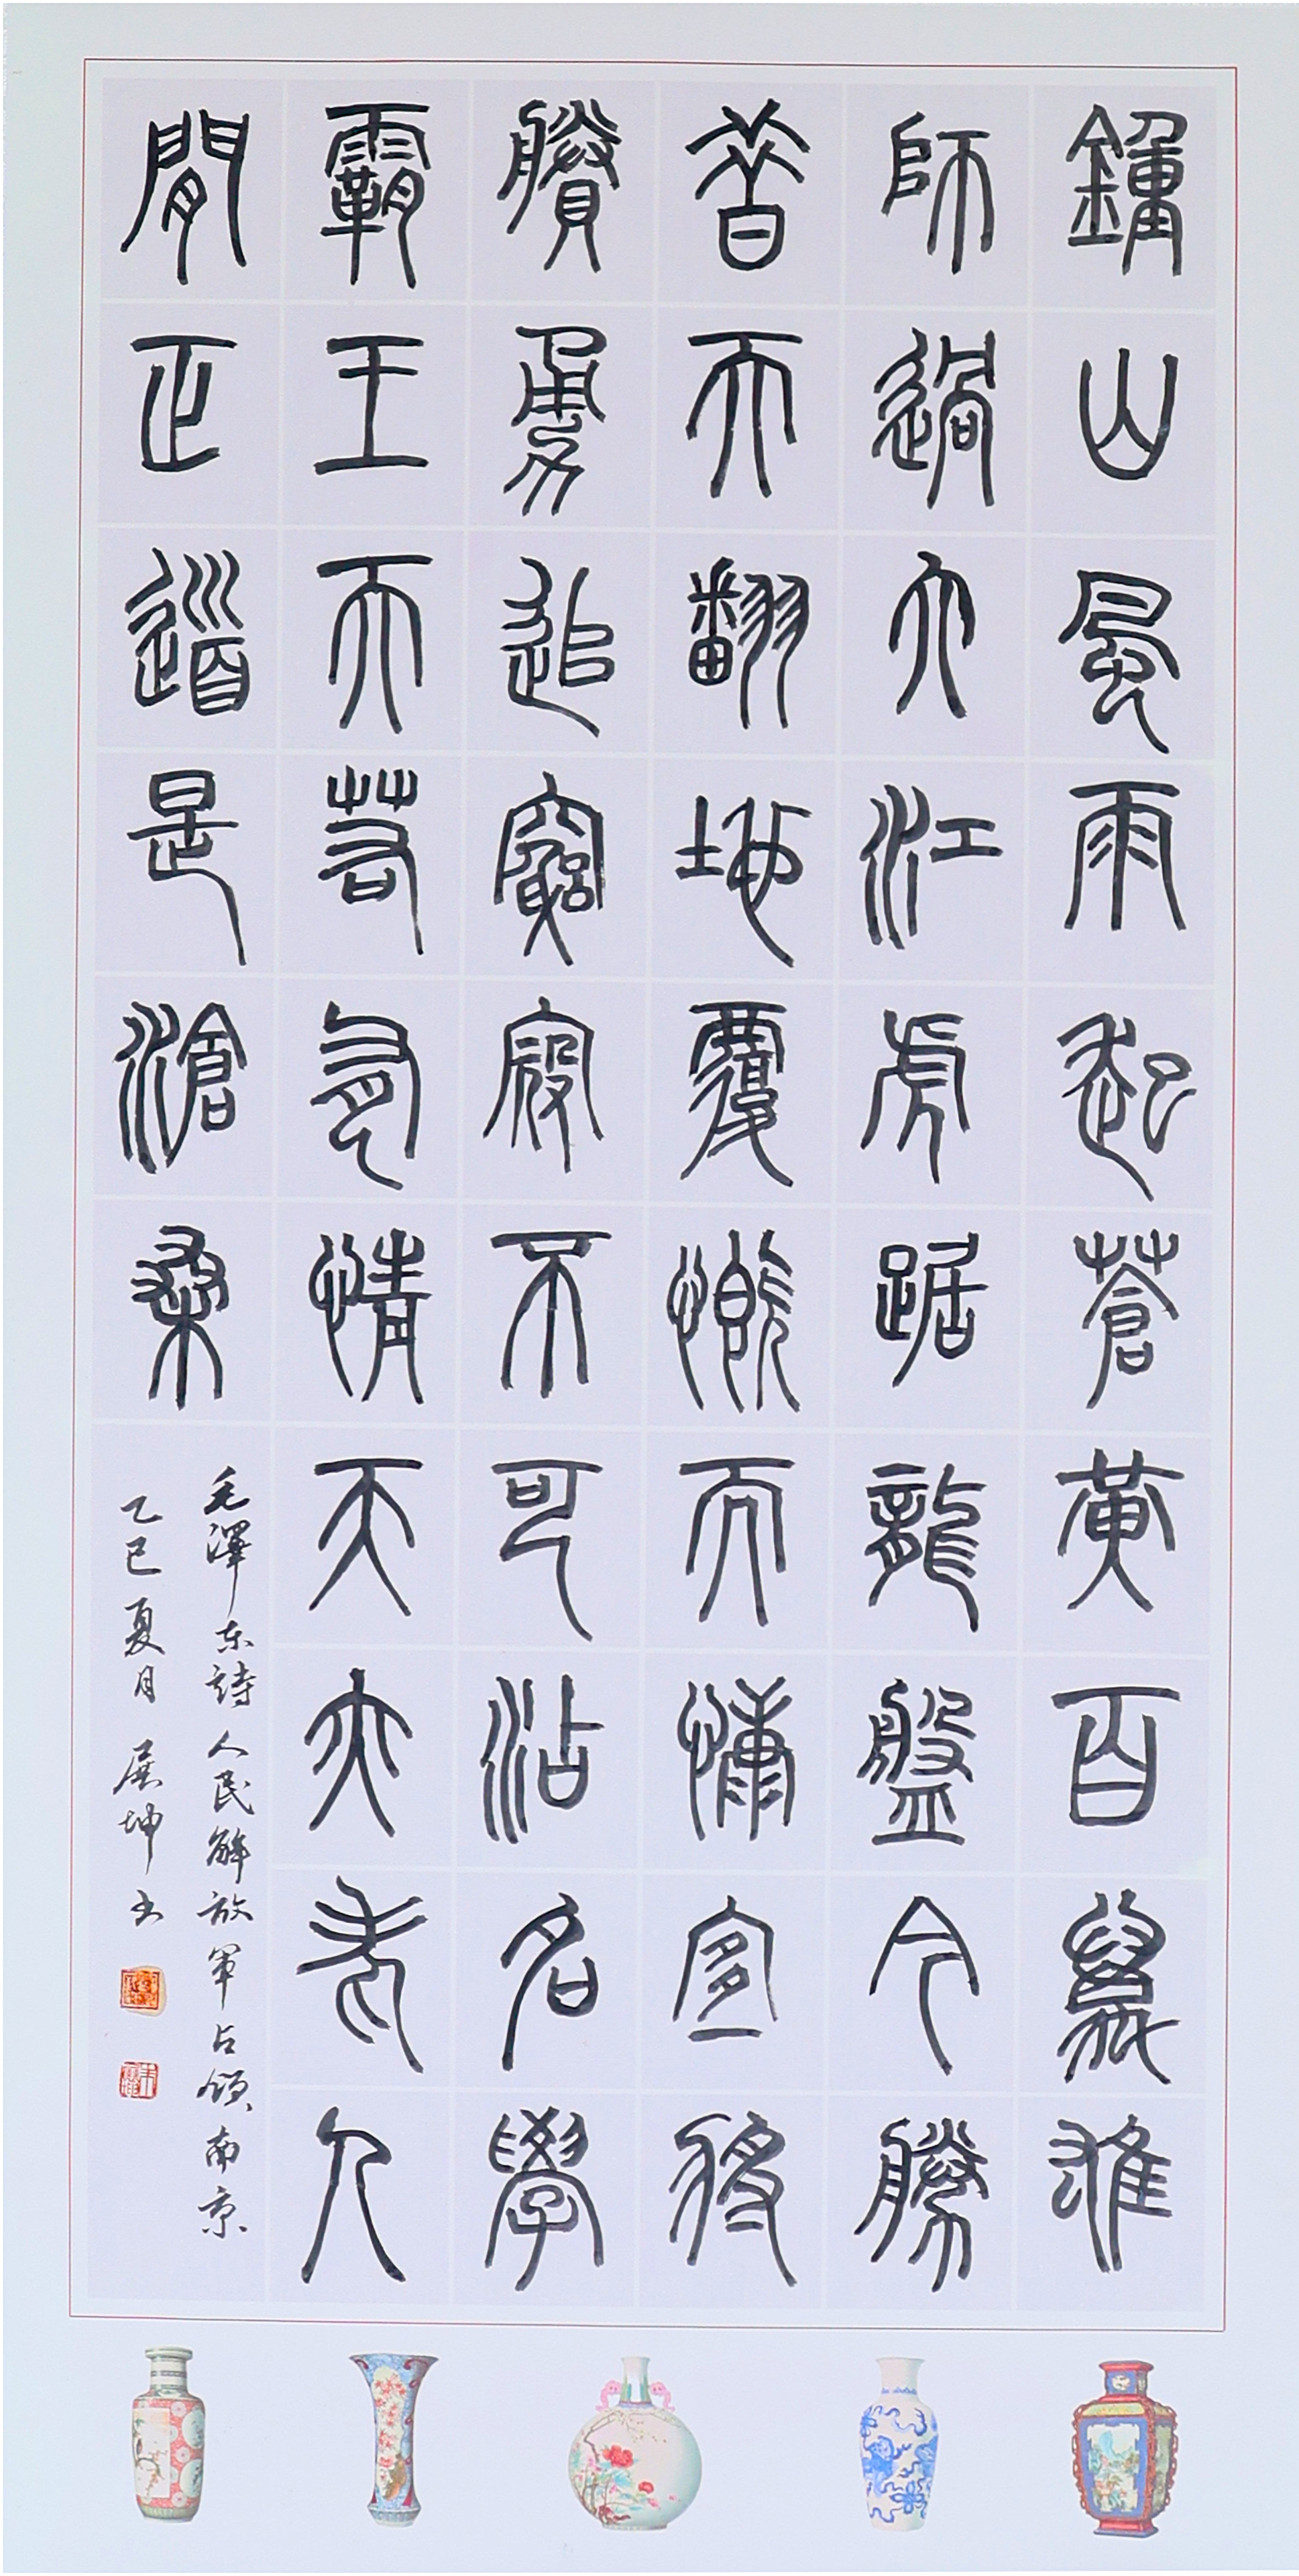 鐘山風雨起蒼黃百萬雄
師過大江虎踞龍盤今勝
昔天翻地覆慨而慷宜將
賸勇追窮寇不可沽名學
霸王天若有情天亦老人
間正道是滄桑
毛澤东詩人民解放軍占領南京
乙巳夏月展坤书